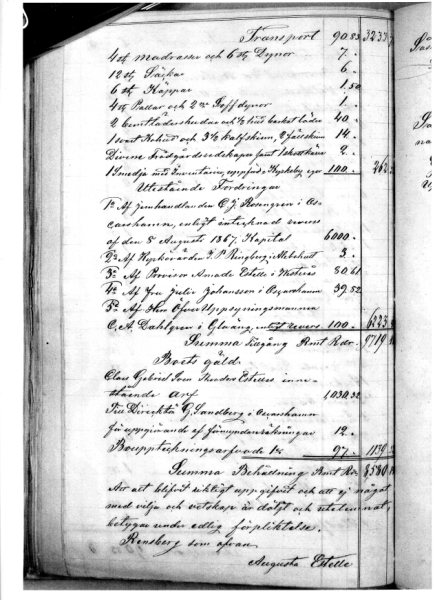 Transport 90 83 3233
4 st. madrasser och 6 st. Dynor 7 "
12 st. Säckar 6 "
6 st. Käppar 1 50
4 st. Pallar och 2ne Soffdynor 1 "
2 bromläderhudar och 1/2 hud barkat läder 40 "
1 svart Kohud och 3 1/2 kalfskinn, 2 fällskinn 14 "
Diverse Trädgårdsredskaper samt 1 skottkärra 2 "
1 Smedja med Inventarier, uppförd å Kyrkeby egor 100 " 262
Utestående Fordringar
1o Af Jernhandlanden C. J. Rosengren i Os-
carshamn, enligt intecknad revers
af den 8 Augusti 1867. Kapital 6000 "
2o Af Kyrkovärden P. Ringberg i 3 "
3o Af Provisor Amade Estelle i Westerås 80 61
4o Af Fru Julie Johansson i Oscarshamn 39 52
5o Af Herr Öfver Uppsyningsmannen
C. A. Dahlgren i Glväng, enligt revers 100 " 6223
Summa Tillgång Rmt Rdr 9719
Boets gäld.
Claes Gabriel Sven Theodor Estelles inne-
stående arf 1030 32
Till Direktör G. Sandberg i Oscarshamn
för uppgörande af förmyndareräkningar 12 "
Bouppteckningsarfvode 1% 97 " 1139
Summa Behållning Rmt Rdr 8580
Att allt blifvit riktigt uppgifvit och att ej något
med vilja och vetskap är döljt och utelemnat,
betygar under edlig förpliktelse.
Rensberg som ofvan
Augusta Estelle